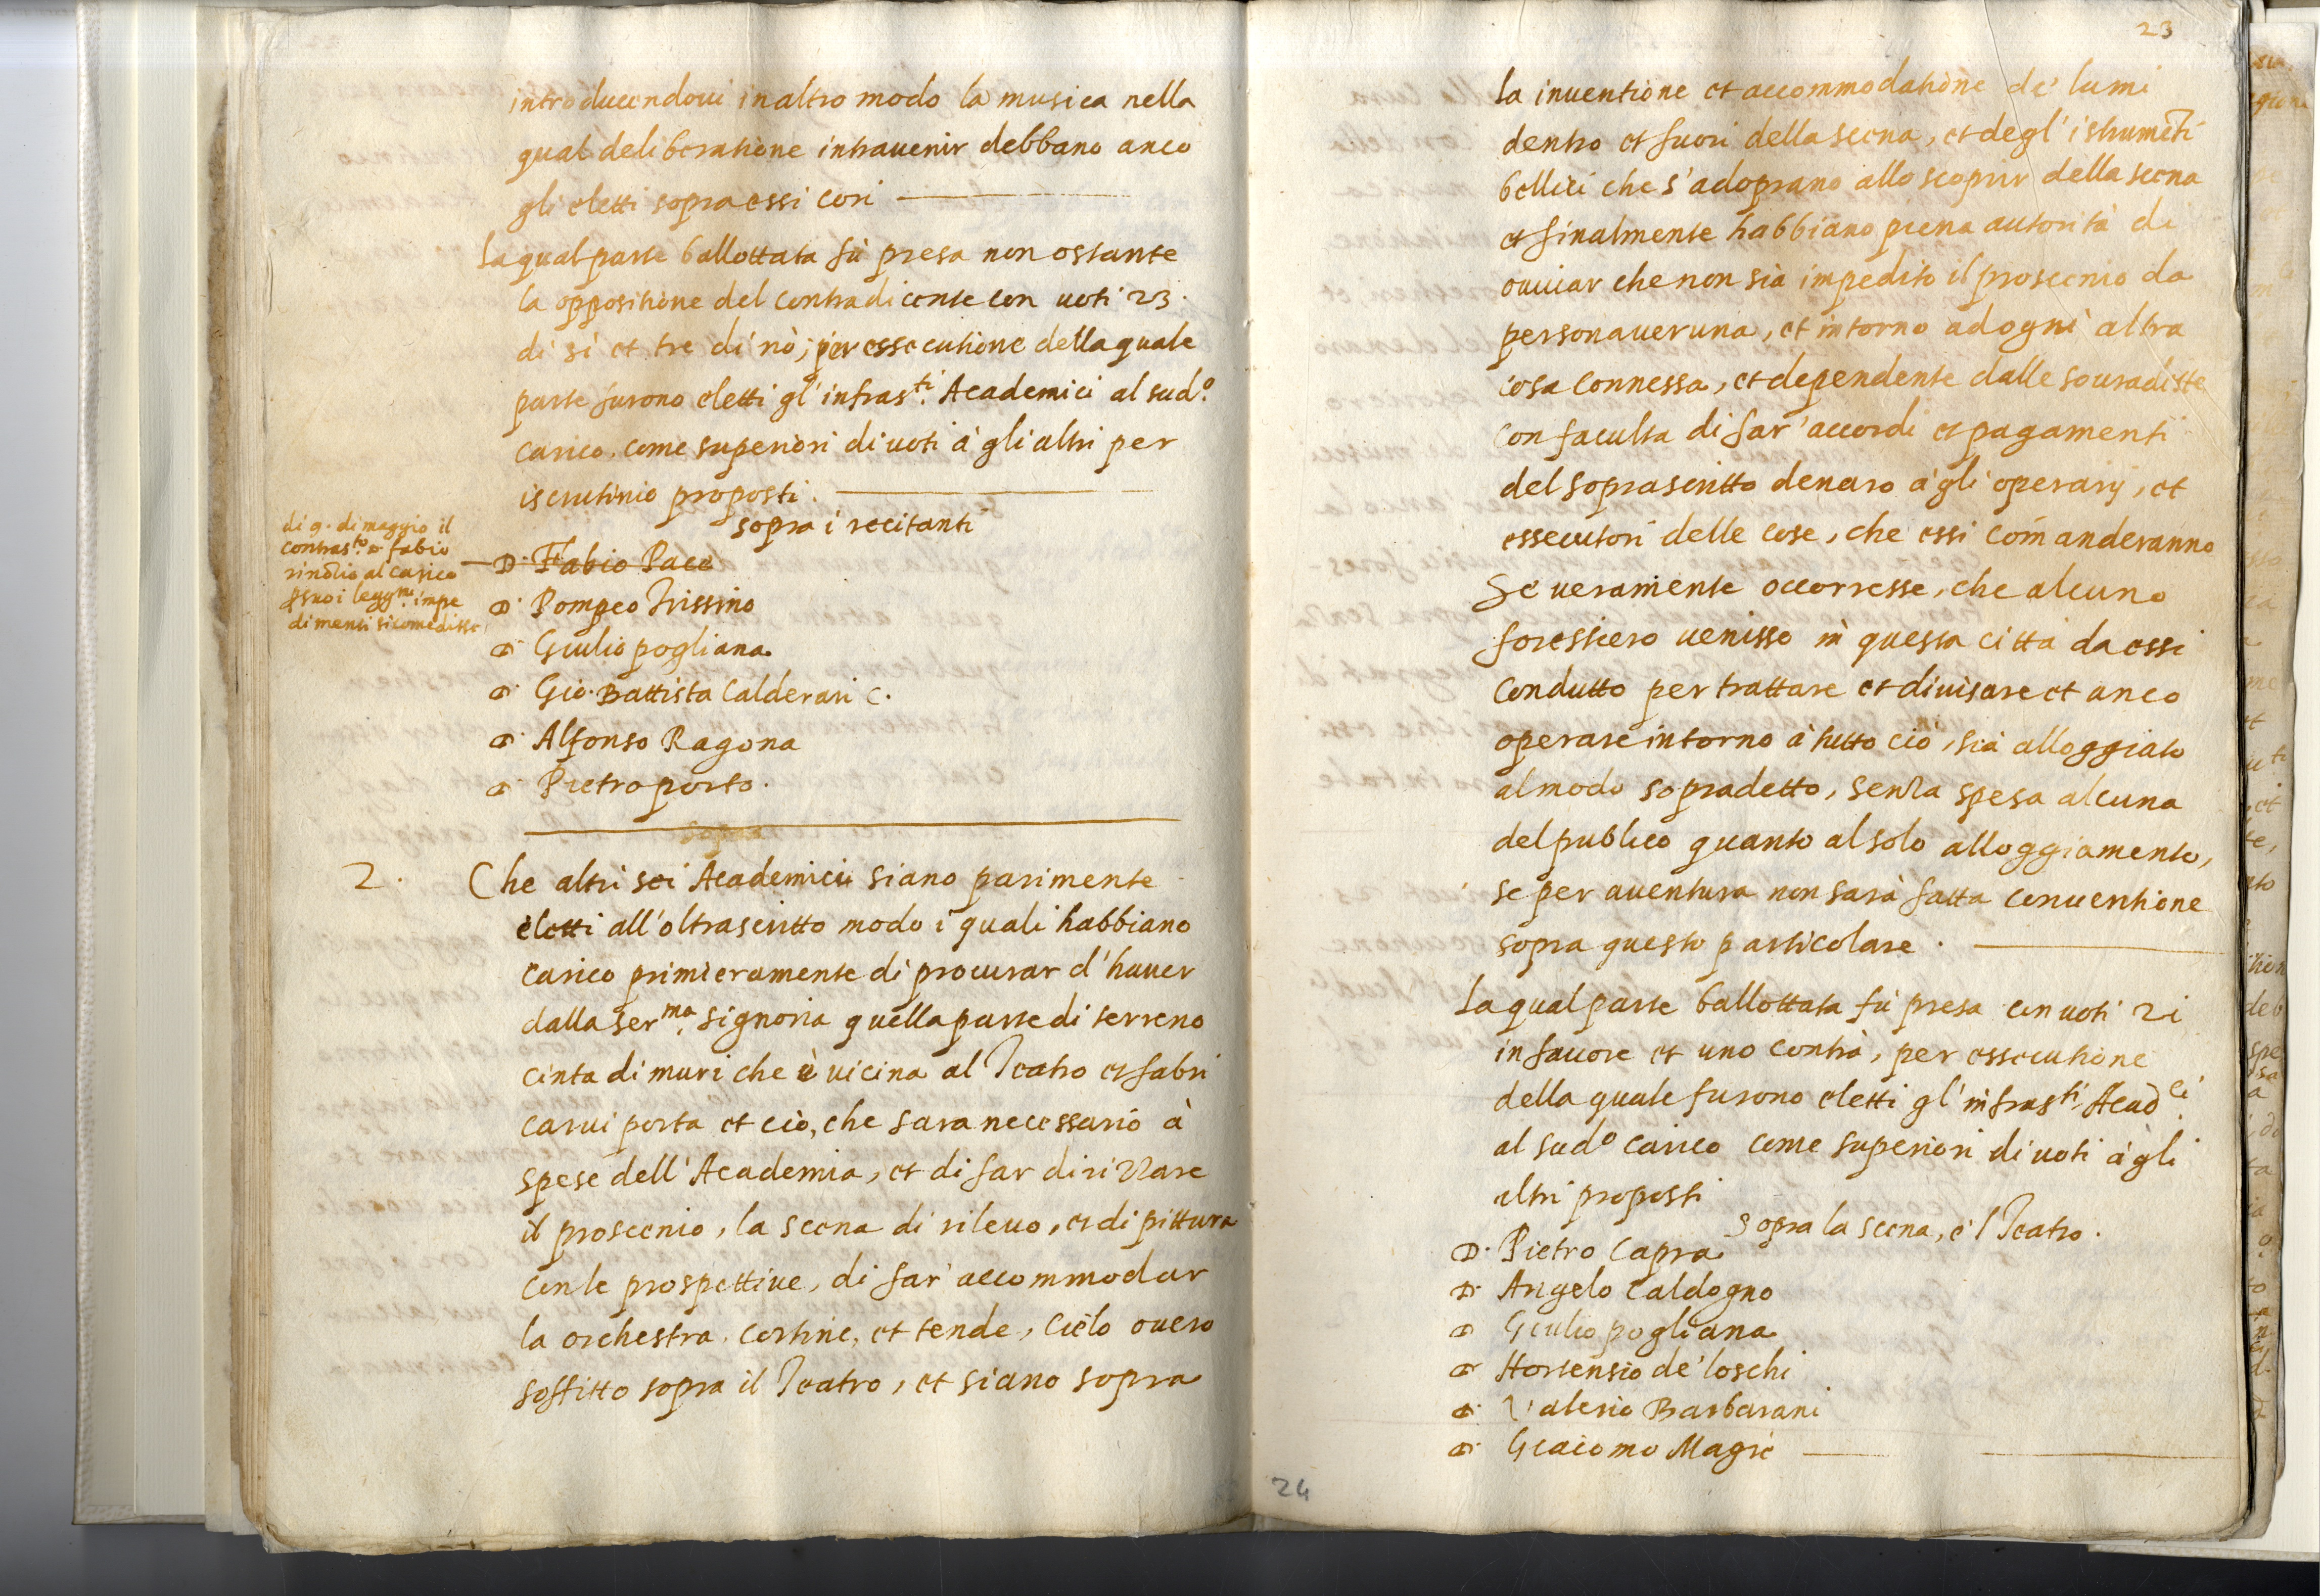 introducendoui in altro modo la musica nella
qual deliberatione intrauenir debbano anco
gli eletti sopra essi cori
La qual parte ballottata fù presa non ostante
la oppositione del contradicente con uoti 23.
di si et tre di nò; per essecutione della quale
parte furono eletti gl' infras.ti Academici al sud.o
carico, come superiori di uoti à gli altri per
iscrutinio proposti.
sopra i recitanti
di 9. di maggio il
contras.to D. fabio
rinōtio al carico
p suoi legg.mi impe
dimenti si come disse
D. Fabio Pace
D. Pompeo Trissino
D. Giulio pogliana
D. Gio. Battista Calderari C.
D. Alfonso Ragona
D. Pietro porto.
2. Che altri sei Academici siano parimente
eletti all' oltrascritto modo i quali habbiano
carico primieramente di procurar d' hauer
dalla ser.ma signoria quella parte di terreno
cinta di muri che è uicina al Teatro et fabri
carui porta et ciò, che sara necessario à
spese dell' Academia, et di far dirizzare
il proscenio, la scena di rileuo, et di pittura
con le prospettiue, di far' accommodar
la orchestra, cortine, et tende, cielo ouero
soffitto sopra il Teatro, et siano sopra
23
la inuentione et accommodatione de' lumi
dentro et fuori della scena, et degl' istrumēti
bellici che s' adoprano allo scoprir della scena
et finalmente habbiano piena autorità di
ouuiar che non sia impedito il proscenio da
persona ueruna, et intorno ad ogni altra
cosa connessa, et dependente dalle souraditte
con faculta di far' accordi et pagamenti
del soprascritto denaro à gli operarij, et
essecutori delle cose, che essi com̄anderanno
Se ueramente occorresse, che alcuno
forestiero uenisse in questa città da essi
condutto per trattare et diuisare et anco
operare intorno à tutto ciò, sia alloggiato
al modo sopradetto, senza spesa alcuna
del publico quanto al solo alloggiamento,
se per auentura non sarà fatta conuentione
sopra questo particolare.
La qual parte ballottata fù presa con uoti 21
in fauore et uno contrà, per essecutione
della quale furono eletti gl' infras.ti Acad.ci
al sud.o carico come superiori di uoti à gli
altri proposti
sopra la scena, e 'l Teatro.
D. Pietro Capra
D. Angelo Caldogno
D. Giulio pogliana
D. Hortensio de' loschi
D. Valerio Barbarani
D. Giacomo Magrè
24